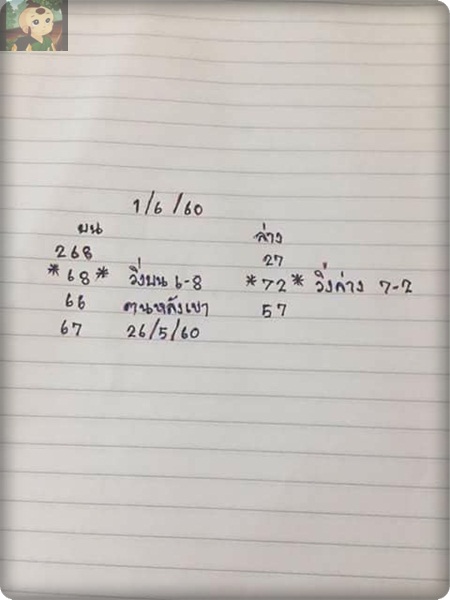 1/6/60
บน ล่าง
268 27
*68* วิ่งบน 6-8 *72* วิ่งล่าง 7-2
66 คนหลังเขา 57
67 26/5/60